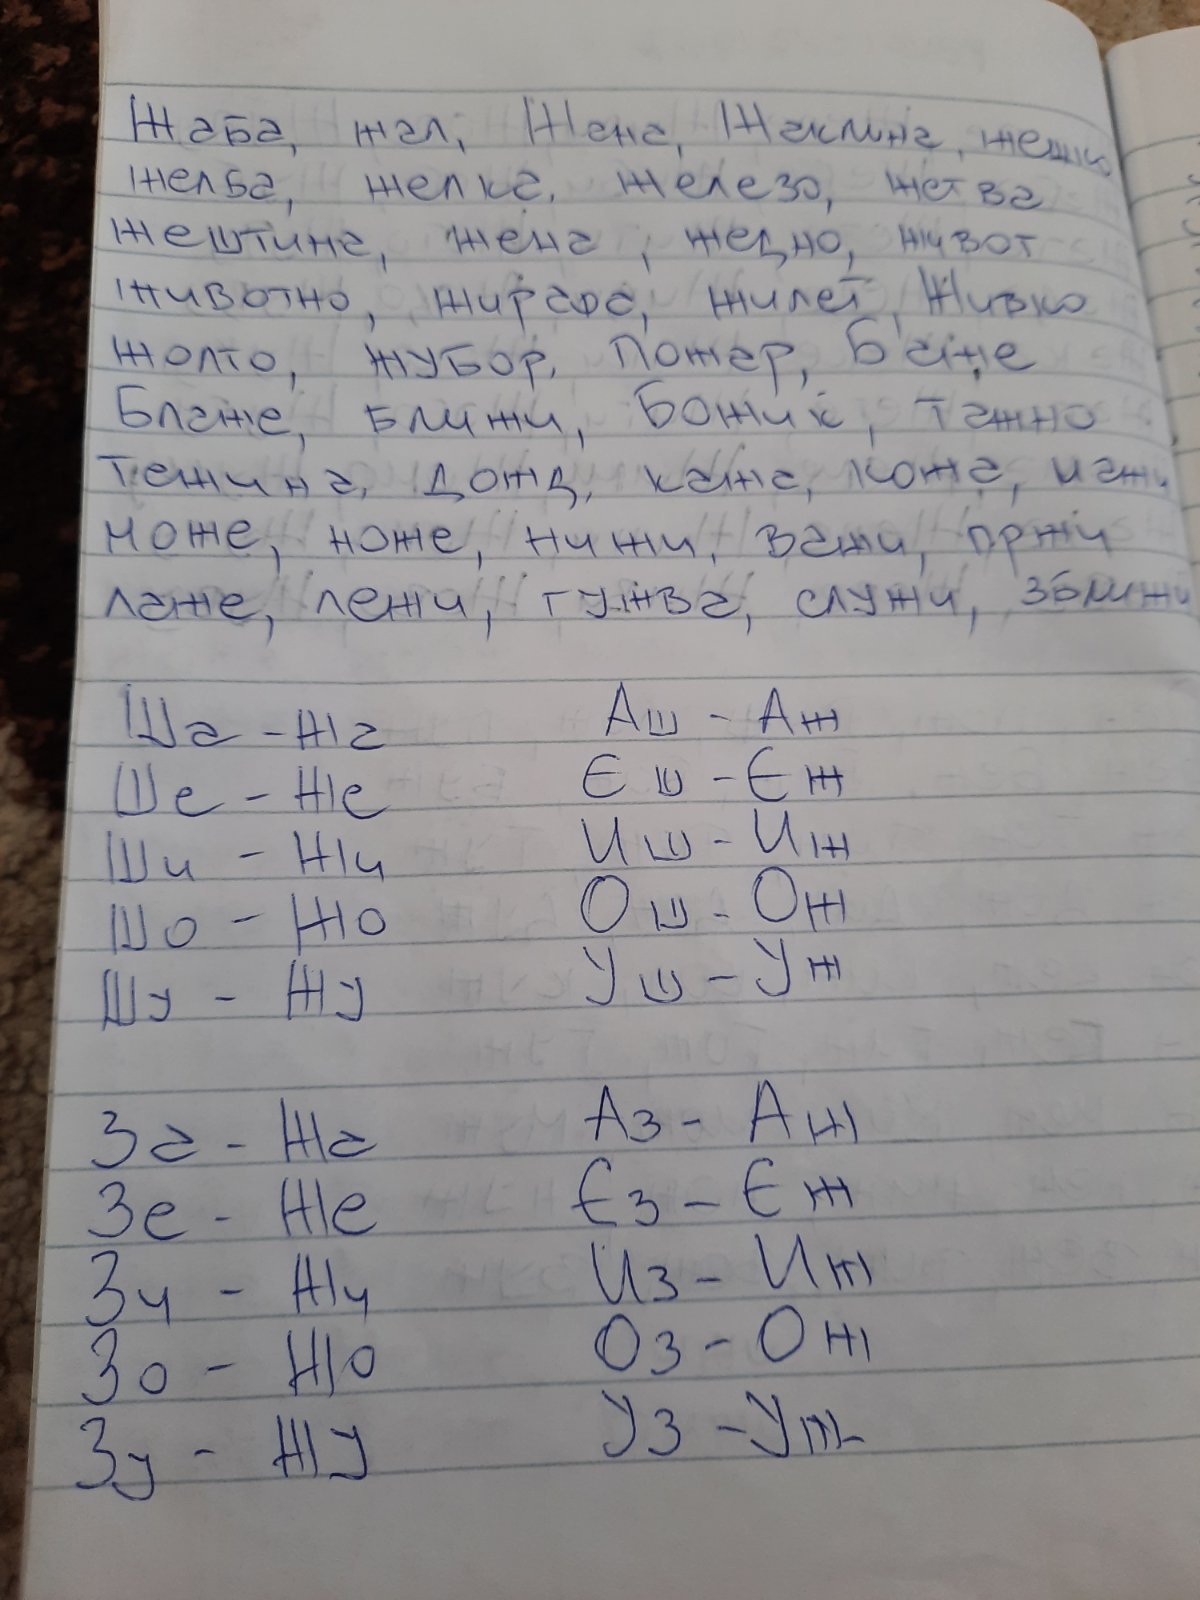 Жаба, жал, Жана, Жаклина, жешко
желба, желка, железо, жетва
жештина, жена, жедно, живот
животно, жирафа, жилет, Живко
жолто, жубор, Пожар, Баже
Блаже, ближи, Божиќ, тажно
тежина, дожд, кажа, кожа, мажи
може, ноже, нижи, важи, пржи
лаже, лежи, гужва, служи, зближи
Ша - Жа Аш - Аж
Ше - Же Еш - Еж
Ши - Жи Иш - Иж
Шо - Жо Ош - Ож
Шу - Жу Уш - Уж
За - Жа Аз - Аж
Зе - Же Ез - Еж
Зи - Жи Из - Иж
Зо - Жо Оз - Ож
Зу - Жу Уз - Уж